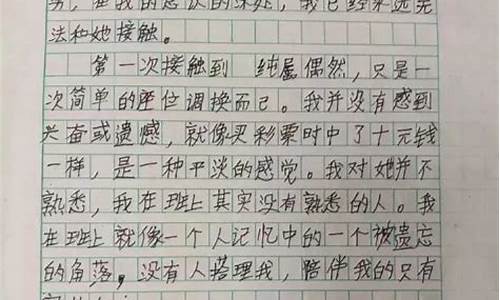 的意识的深处，我已经永远无
法和她接触。
第一次接触到 纯属偶然，只是一
次简单的座位调换而已。我并没有感到
兴奋或遗憾，就像买彩票时中了十元钱
一样，是一种平淡的感觉。我对她并不
熟悉，我在班上其实没有熟悉的人。我
在班上就像一个人记忆中的一个被遗忘
的角落。没有人搭理我，陪伴我的只有